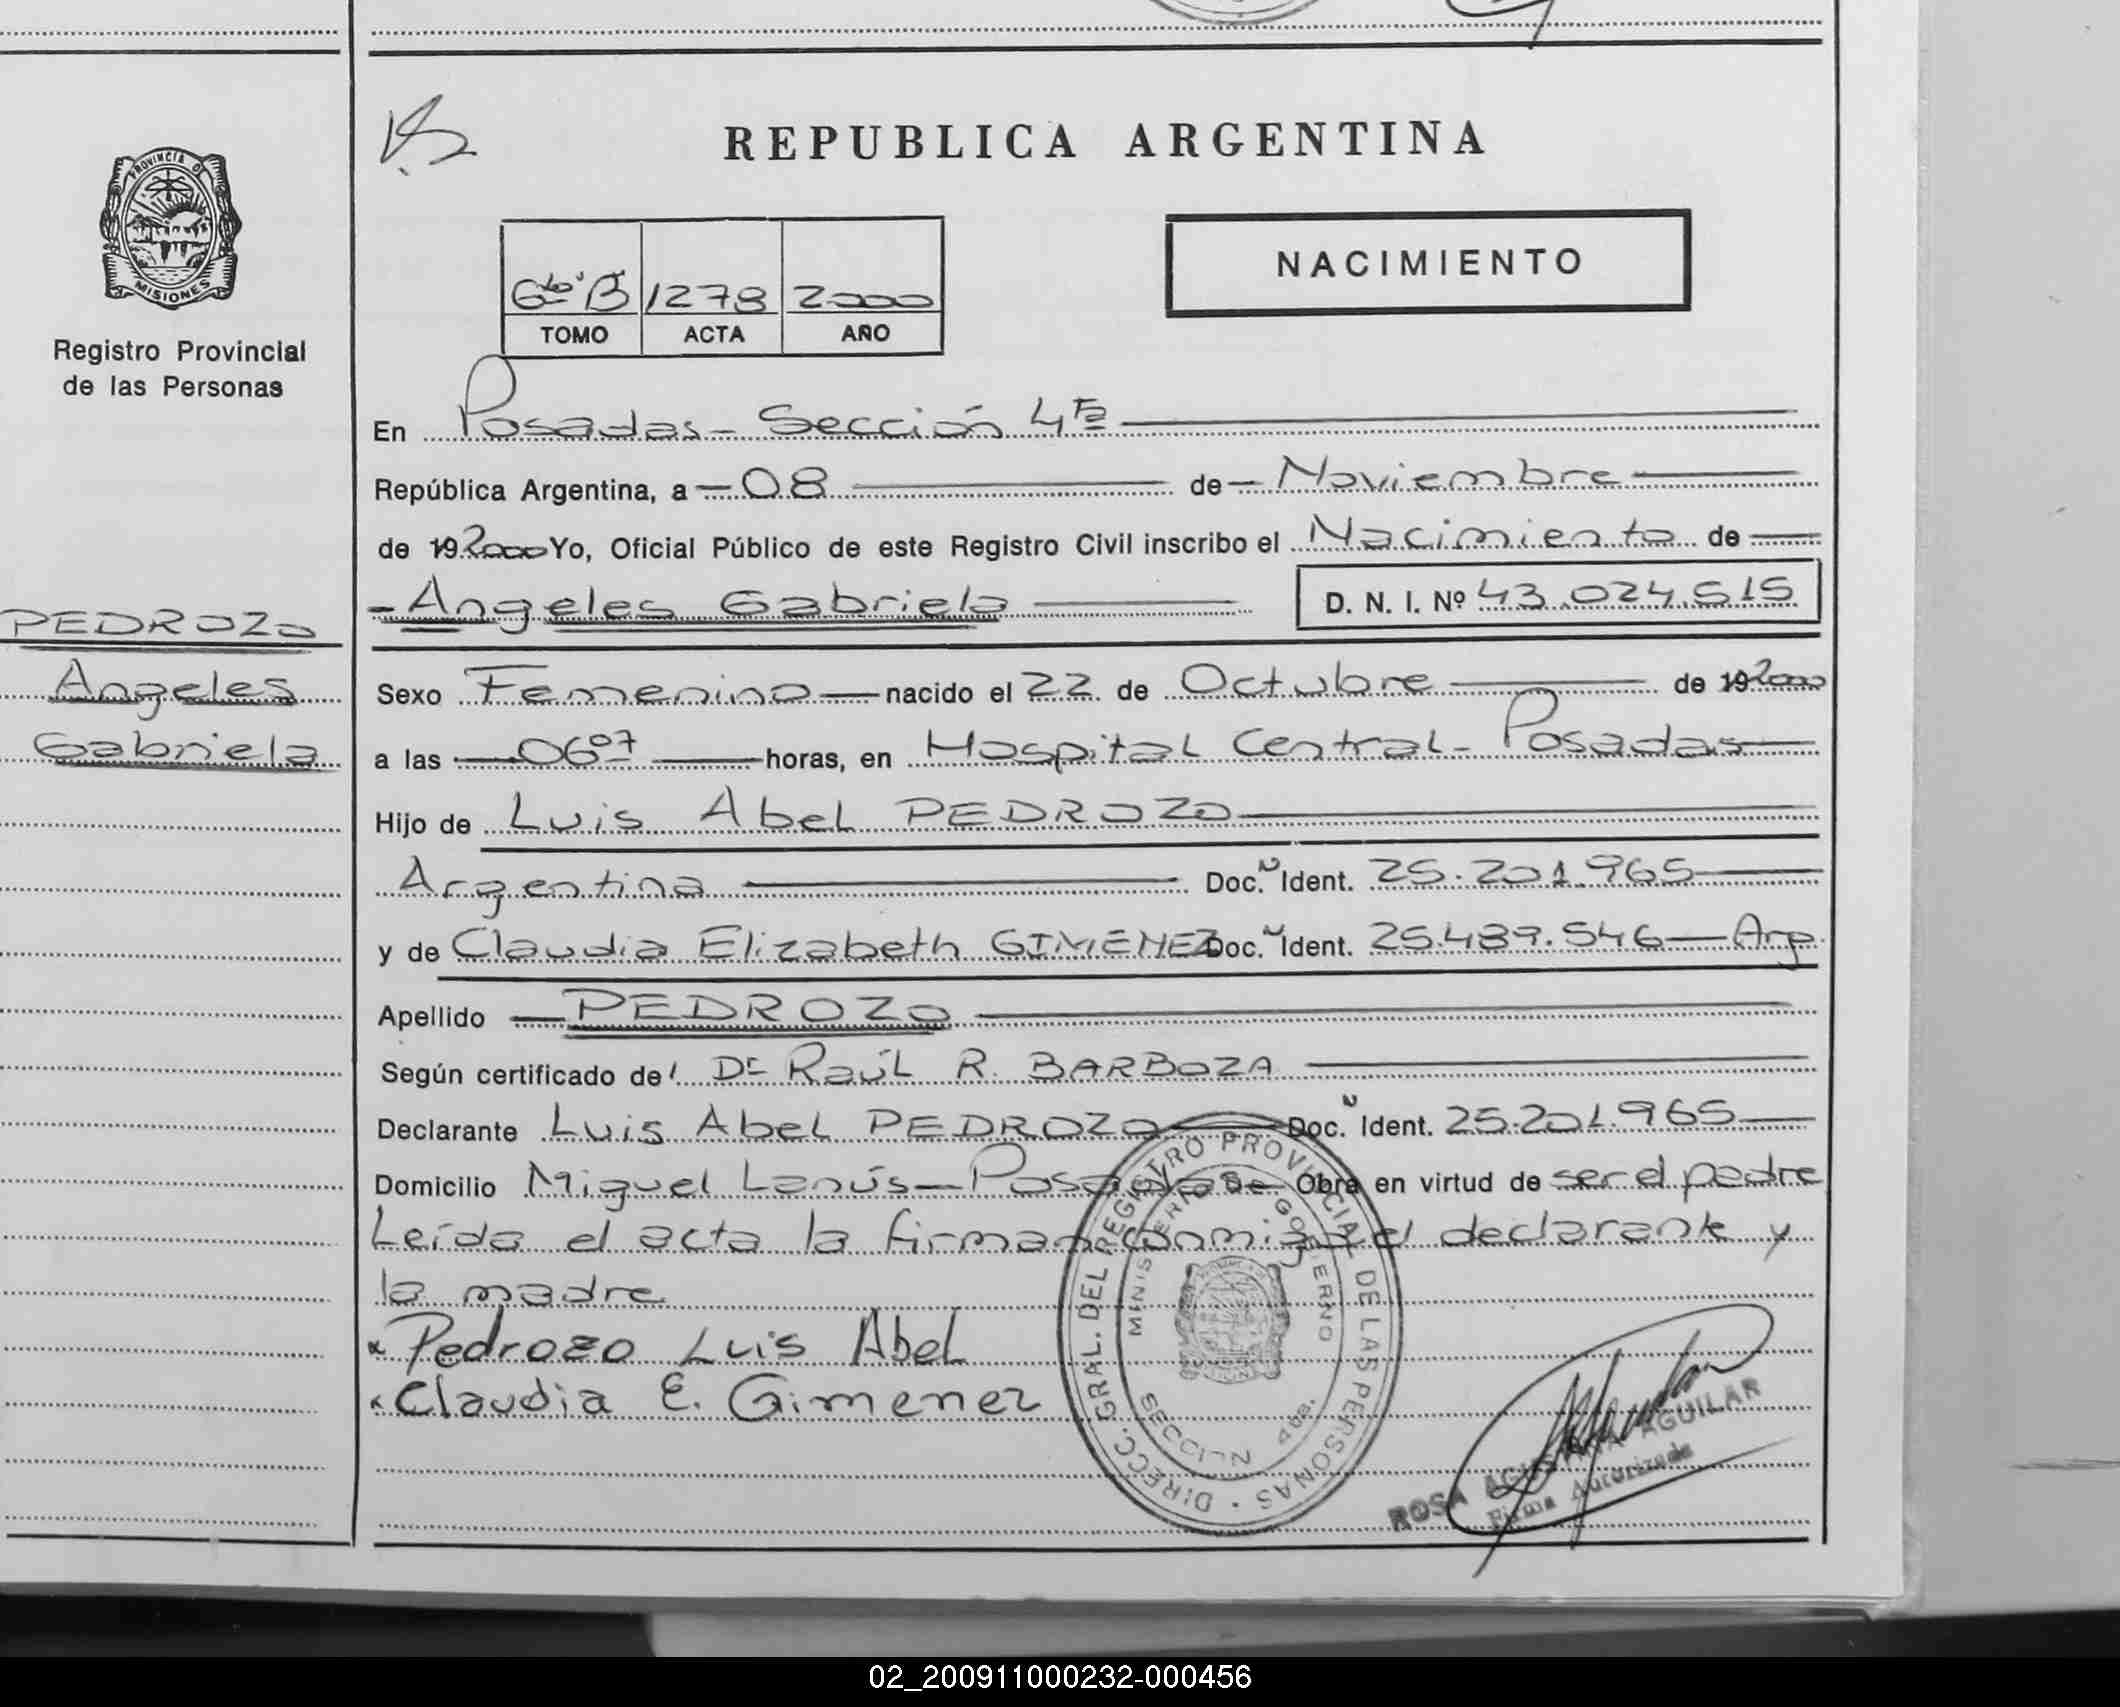 PROVINCIA D
MISIONES
Registro Provincial
de las Personas
PEDROZO
Angeles
Gabriela
REPUBLICA ARGENTINA
NACIMIENTO
6to "B" 1278 2000
TOMO ACTA AÑO
En Posadas - Sección 4ta
República Argentina, a 08 de Noviembre
de 19 2000 Yo, Oficial Público de este Registro Civil inscribo el Nacimiento de
Angeles Gabriela D. N. I. Nº 43.024.515
Sexo Femenino nacido el 22 de Octubre de 19 2000
a las 06 07 horas, en Hospital Central - Posadas
Hijo de Luis Abel PEDROZO
Argentina Doc. N Ident. 25.201.965
y de Claudia Elizabeth GIMENEZ Doc. N Ident. 25.489.546 - Arg.
Apellido PEDROZO
Según certificado del Dr Raúl R. BARBOZA
Declarante Luis Abel PEDROZO Doc. N Ident. 25.201.965
Domicilio Miguel Lanús - Posadas Obra en virtud de ser el padre
Leída el acta la firman conmigo el declarante y
la madre
Pedrozo Luis Abel
Claudia E. Gimenez
DIRECC. GRAL. DEL REGISTRO PROVINCIAL DE LAS PERSONAS
MINISTERIO DE GOBIERNO
SECCION 4ta.
ROSA AGUSTINA AGUILAR
Firma Autorizada
02_200911000232-000456